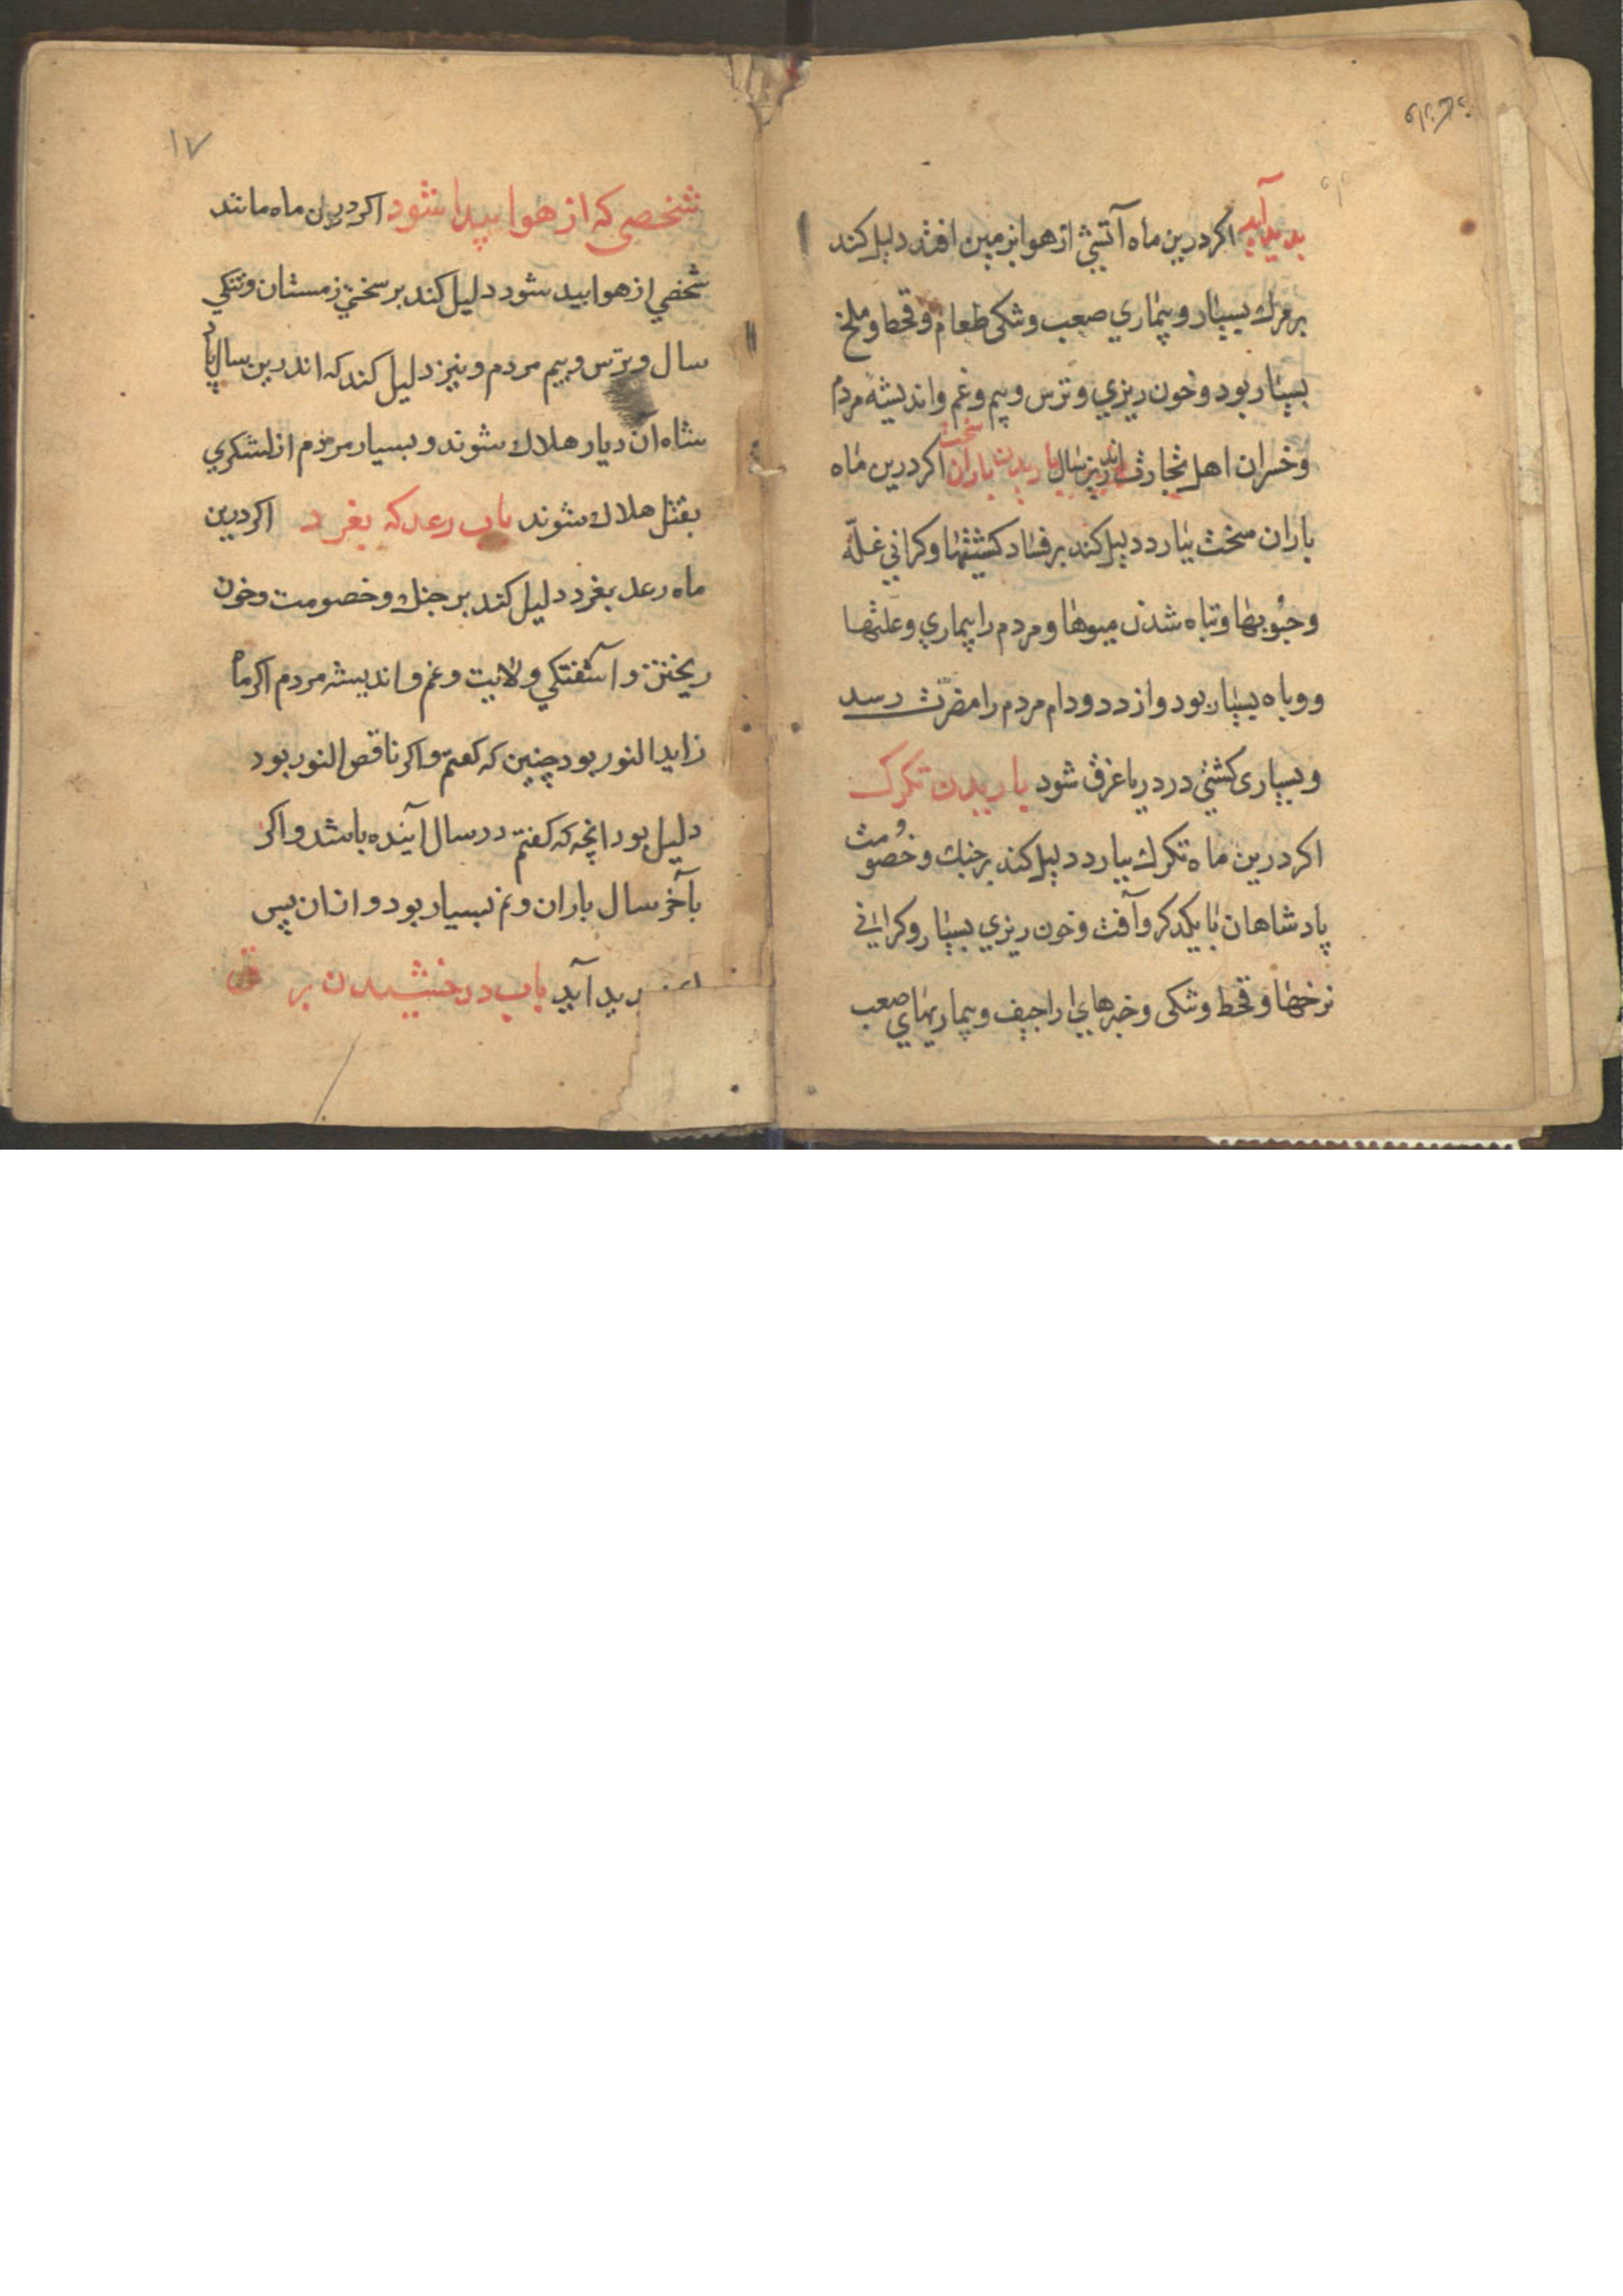 پدید آید اکر درین ماه آتشی از هوا بزمین افتد دلیل کند
بر مرك بسیار و بیماري صعب و تنکی طعام و قحط و ملخ
بسیار بود و خون ریزي و ترس و بیم و غم و اندیشه مردم
و خسران اهل تجارت اندرین سال باریدن باران سخت اکر درین ماه
باران سخت ببارد دلیل کند بر فساد کشتها و کراني غلّه
و حبُوبها و تباه شدن میوها و مردم را بیماري و علتها
و وباه بسیار بود و از دد و دام مردم را مضرّت رسد
و بسیاری کشتي در دریا غرق شود باریدن تکرک
اکر درین ماه تکرك ببارد دلیل کند بر جنك و خصومت
پادشاهان با یکدکر و آفت و خون ریزي بسیار و کراني
نرخها و قحط و تنکی و خبرهاي اراجیف و بیماریهاي صعب
۱۷
شخصی که از هوا پیدا شود اکر درین ماه مانند
شخصي از هوا پید شود دلیل کند بر سختي زمستان و تنکي
سال و ترس و بیم مردم و نیز دلیل کند که اندرین سال پاد
شاه آن دیار هلاك شوند و بسیار مردم از لشکري
بقتل هلاك شوند باب رعد که بغرد اکر درین
ماه رعد بغرد دلیل کند بر جنك و خصومت و خون
ریختن و آشفتکي ولایت و غم و اندیشه مردم اکر ماه
زاید النور بود چنین که کفتم و اکر ناقص النور بود
دلیل بود انچه که کفتم در سال آینده باشد و اکر
بآخر سال باران و نم بسیار بود و از ان پس
پدید آید باب درخشیدن برق